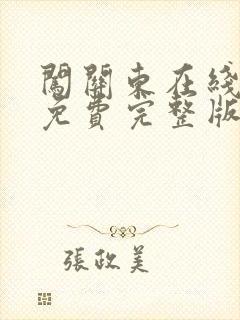 闖關東在綫
免費完整版
張政美